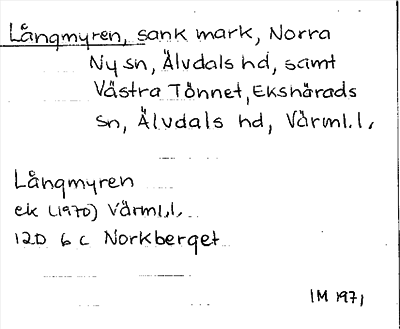 Långmyren, sank mark, Norra
Ny sn, Älvdals hd, samt
Västra Tönnet, Ekshärads
sn, Älvdals hd, Värml.l.
Långmyren
ek (1970) Värml.l.
12D 6 c Norkberget
IM 1971